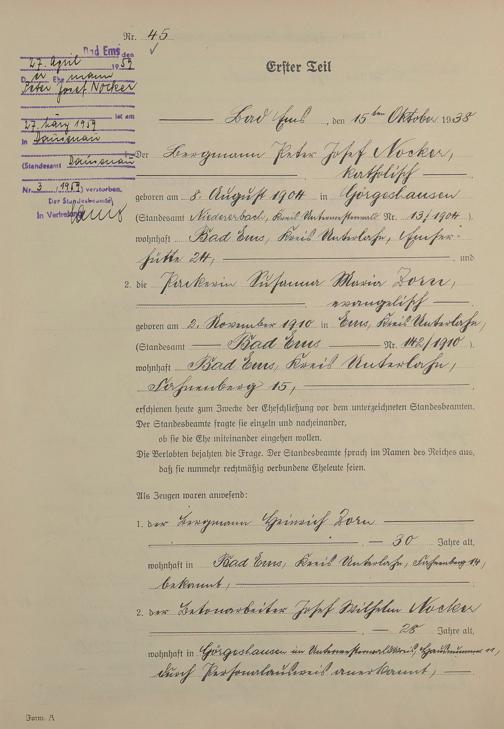 Nr. 45
Bad Ems den
27. April 1959
Der Ehemann
Peter Josef Nocker
ist am
27. März 1959
in Dausenau
(Standesamt Dausenau
Nr. 3/1959) verstorben.
Der Standesbeamte
In Vertretung
Erster Teil
Bad Ems, den 15ten Oktober 1938
1. Der Bergmann Peter Josef Nocker,
katholisch
geboren am 8. August 1904 in Görgeshausen
(Standesamt Niedererbach, Kreis Unterwesterwald Nr. 13/1904)
wohnhaft Bad Ems, Kreis Unterlahn, Emser-
hütte 24, und
2. die Packerin Susanna Maria Zorn,
evangelisch
geboren am 2. November 1910 in Ems, Kreis Unterlahn,
(Standesamt Bad Ems Nr. 142/1910)
wohnhaft Bad Ems, Kreis Unterlahn,
Fahnenberg 15,
erschienen heute zum Zwecke der Eheschließung vor dem unterzeichneten Standesbeamten.
Der Standesbeamte fragte sie einzeln und nacheinander,
ob sie die Ehe miteinander eingehen wollen.
Die Verlobten bejahten die Frage. Der Standesbeamte sprach im Namen des Reiches aus,
daß sie nunmehr rechtmäßig verbundene Eheleute seien.
Als Zeugen waren anwesend:
1. der Bergmann Heinrich Zorn
30 Jahre alt,
wohnhaft in Bad Ems, Kreis Unterlahn, Fahnenberg 14,
bekannt,
2. der Betonarbeiter Josef Wilhelm Nocker
28 Jahre alt,
wohnhaft in Görgeshausen im Unterwesterwaldkreis, Hausnummer 11,
durch Personalausweis anerkannt,
Form. A